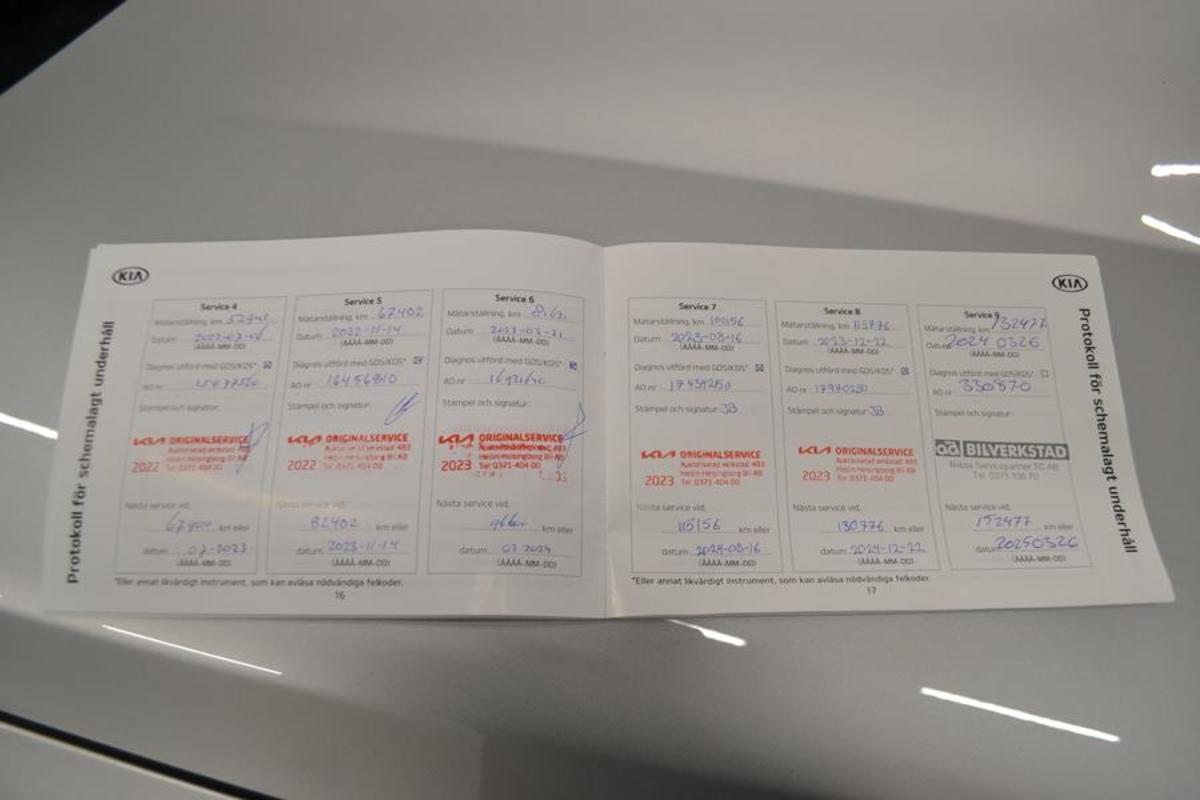 KIA
Protokoll för schemalagt underhåll
Service 4
Mätarställning, km
Datum
(ÅÅÅÅ-MM-DD)
Diagnos utförd med GDS/KDS*
AO nr
Stämpel och signatur:
KIA ORIGINALSERVICE
Auktoriserad verkstad 483
Hedin Helsingborg Bil AB
2022 Tel: 0371-404 00
Nästa service vid:
km eller
datum 07-2023
(ÅÅÅÅ-MM-DD)
Service 5
Mätarställning, km 67402
Datum 2022-11-14
(ÅÅÅÅ-MM-DD)
Diagnos utförd med GDS/KDS*
AO nr 16456810
Stämpel och signatur:
KIA ORIGINALSERVICE
Auktoriserad verkstad 483
Hedin Helsingborg Bil AB
2022 Tel: 0371-404 00
Nästa service vid:
82402 km eller
datum 2023-11-14
(ÅÅÅÅ-MM-DD)
Service 6
Mätarställning, km
Datum 2023-03-21
(ÅÅÅÅ-MM-DD)
Diagnos utförd med GDS/KDS*
AO nr
Stämpel och signatur:
KIA ORIGINALSERVICE
Hedin Helsingborg Bil AB
2023 Tel: 0371-404 00
Nästa service vid:
km eller
datum 03 2024
(ÅÅÅÅ-MM-DD)
*Eller annat likvärdigt instrument, som kan avläsa nödvändiga felkoder.
16
KIA
Protokoll för schemalagt underhåll
Service 7
Mätarställning, km 100156
Datum 2023-08-16
(ÅÅÅÅ-MM-DD)
Diagnos utförd med GDS/KDS*
AO nr 17439250
Stämpel och signatur: JB
KIA ORIGINALSERVICE
Auktoriserad verkstad 483
Hedin Helsingborg Bil AB
2023 Tel: 0371-404 00
Nästa service vid:
115156 km eller
datum 2024-08-16
(ÅÅÅÅ-MM-DD)
Service 8
Mätarställning, km 115776
Datum 2023-12-22
(ÅÅÅÅ-MM-DD)
Diagnos utförd med GDS/KDS*
AO nr 17970230
Stämpel och signatur: JB
KIA ORIGINALSERVICE
Auktoriserad verkstad 483
Hedin Helsingborg Bil AB
2023 Tel: 0371-404 00
Nästa service vid:
130776 km eller
datum 2024-12-22
(ÅÅÅÅ-MM-DD)
Service 9
Mätarställning, km 132477
Datum 2024 0326
(ÅÅÅÅ-MM-DD)
Diagnos utförd med GDS/KDS*
AO nr 330870
Stämpel och signatur:
ad BILVERKSTAD
Servicepartner TC AB
Nästa service vid:
152477 km eller
datum 20250326
(ÅÅÅÅ-MM-DD)
*Eller annat likvärdigt instrument, som kan avläsa nödvändiga felkoder.
17